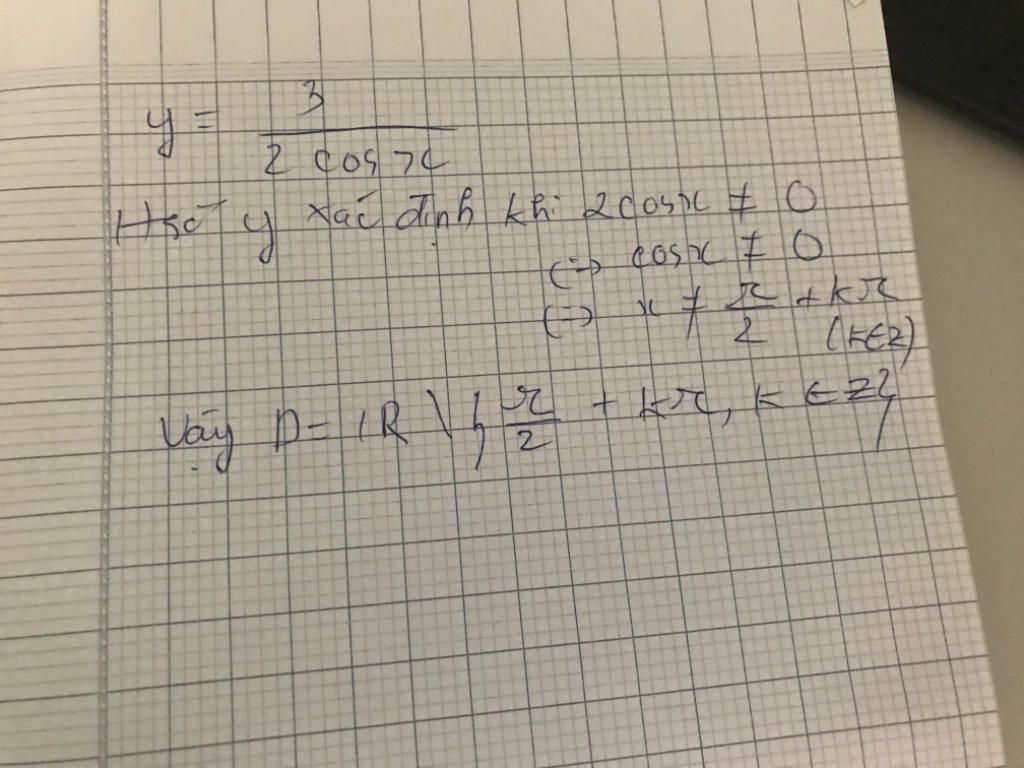 y = 3 / (2 cos x)
Hsố y xác định khi 2cosx ≠ 0
(=) cosx ≠ 0
(=) x ≠ π/2 + kπ (k∈Z)
Vậy D = ℝ \ { π/2 + kπ, k ∈ Z }